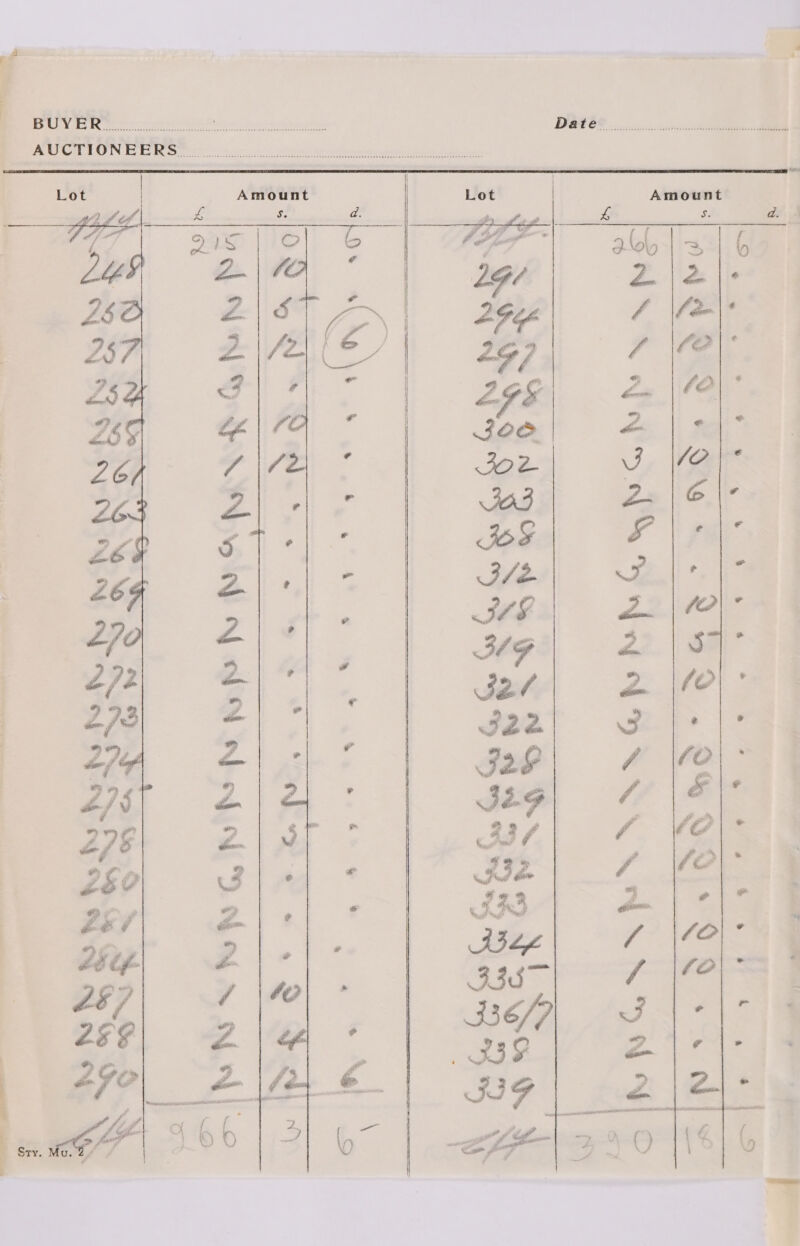 BUYER Date
AUCTIONEERS
Lot Amount
£ s. d.
B/F 215 0 6
248 2 10 "
250 2 5 "
257 2 12 6
3 " "
259 4 10 "
261 1 12 "
263 2 " "
268 5 " "
269 2 " "
270 2 " "
272 2 " "
273 2 " "
274 2 " "
275 2 2 "
278 2 5 "
280 3 " "
281 2 " "
284 2 " "
287 1 10 "
288 2 4 "
290 2 12 6
C/F 266 3 6
Sty. Mu. 2
Lot Amount
£ s. d.
B/F 266 3 6
291 2 2 "
294 1 12 "
297 1 10 "
298 2 10 "
300 2 " "
302 3 10 "
303 2 6 "
308 8 " "
312 3 " "
318 2 10 "
319 2 5 "
321 2 10 "
322 3 " "
328 1 10 "
329 1 8 "
331 1 10 "
332 1 10 "
333 2 " "
334 1 10 "
335 1 10 "
336/7 3 " "
338 2 " "
339 2 2 "
C/F 320 18 6